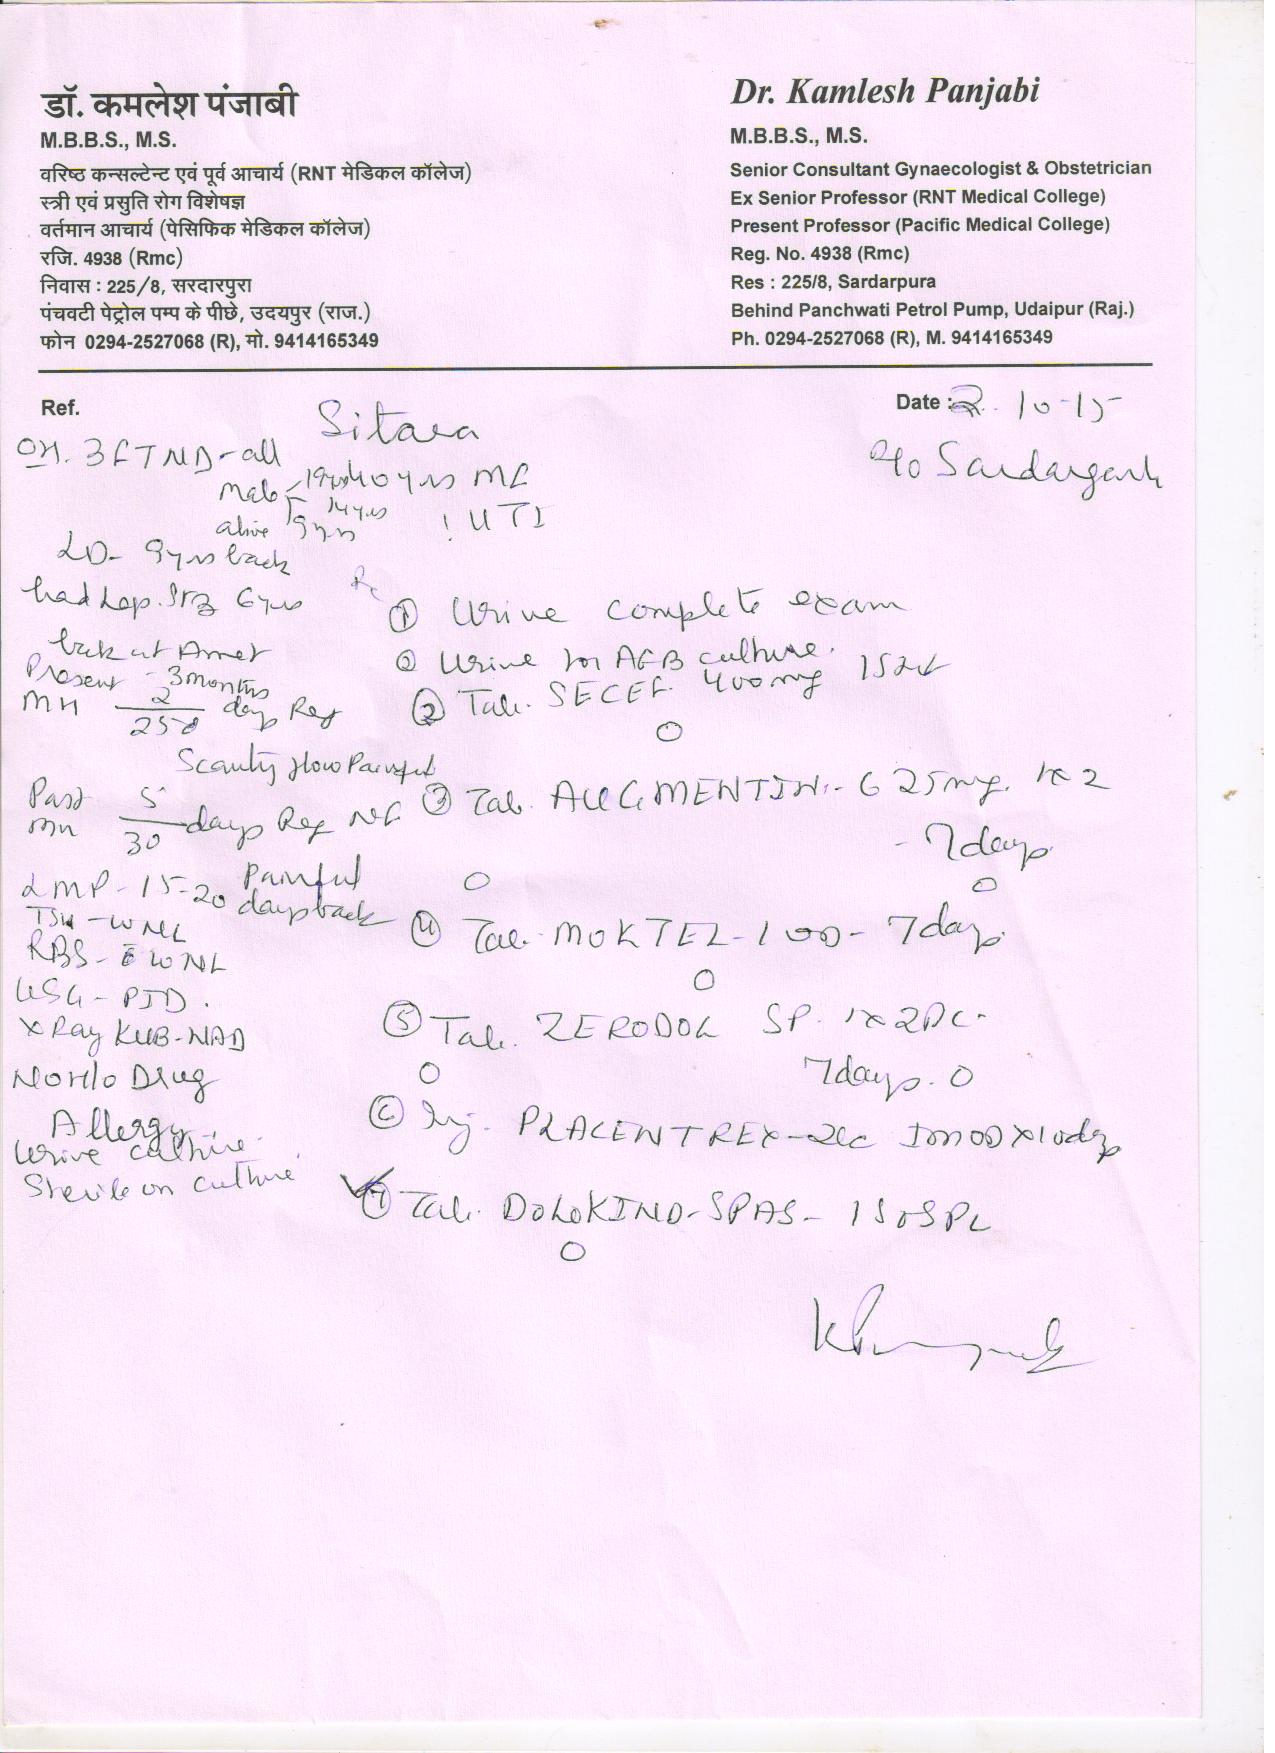 डॉ. कमलेश पंजाबी
M.B.B.S., M.S.
वरिष्ठ कन्सल्टेन्ट एवं पूर्व आचार्य (RNT मेडिकल कॉलेज)
स्त्री एवं प्रसुति रोग विशेषज्ञ
वर्तमान आचार्य (पेसिफिक मेडिकल कॉलेज)
रजि. 4938 (Rmc)
निवास : 225/8, सरदारपुरा
पंचवटी पेट्रोल पम्प के पीछे, उदयपुर (राज.)
फोन 0294-2527068 (R), मो. 9414165349
Dr. Kamlesh Panjabi
M.B.B.S., M.S.
Senior Consultant Gynaecologist & Obstetrician
Ex Senior Professor (RNT Medical College)
Present Professor (Pacific Medical College)
Reg. No. 4938 (Rmc)
Res : 225/8, Sardarpura
Behind Panchwati Petrol Pump, Udaipur (Raj.)
Ph. 0294-2527068 (R), M. 9414165349
Ref.
Date : 2.10-15
Sitara
R/o Sardargarh
OH. 3FTND-all
male
alive
14yrs
9yrs
40yrs MF
! UTI
LD- 9yrs back
had Lap. Stz 6yrs
back at Amet
Present - 3months
MH 2/258 days Reg
Scanty flow Painful
Past MH 5/30 days Reg NF
Painful
LMP-15-20 days back
TSH-WNL
RBS- WNL
USG-PID.
X Ray KUB-NAD
No H/o Drug
Allergy.
Urine culture.
Sterile on culture
Rx
① Urine complete exam
② Urine for AFB culture.
② Tab. SECEF 400mg
③ Tab. AUGMENTIN-625mg. 1x2
- 7days
④ Tab. MOKTEL-100-7days.
⑤ Tab. ZERODOL SP. 1x2PC-
7days.
⑥ Inj. PLACENTREX-2cc ImODx10days
⑦ Tab. DOLOKIND-SPAS- 1SOSPC